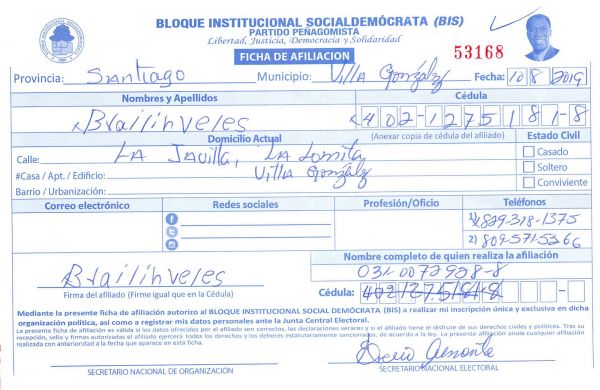 BLOQUE INSTITUCIONAL SOCIALDEMÓCRATA (BIS)
PARTIDO PEÑAGOMISTA
Libertad, Justicia, Democracia y Solidaridad
FICHA DE AFILIACION
53168
Provincia: Santiago Municipio: Villa González Fecha: 10/8/2019
Nombres y Apellidos Cédula
Brailinveles 402-1275181-8
Domicilio Actual (Anexar copia de cédula del afiliado) Estado Civil
Calle: LA Javilla, LA Lomita Casado
#Casa / Apt. / Edificio: Villa González Soltero
Barrio / Urbanización: Conviviente
Correo electrónico Redes sociales Profesión/Oficio Teléfonos
1) 829-318-1375
2) 809-571-5266
Nombre completo de quien realiza la afiliación
Brailinveles 031-0072928-8
Firma del afiliado (Firme igual que en la Cédula) Cédula: 402127518-8
Mediante la presente ficha de afiliación autorizo al BLOQUE INSTITUCIONAL SOCIAL DEMÓCRATA (BIS) a realizar mi inscripción única y exclusiva en dicha
organización política, así como a registrar mis datos personales ante la Junta Central Electoral.
La presente ficha de afiliación es válida si los datos ofrecidos por el afiliado son correctos, las declaraciones veraces y si el afiliado tiene el disfrute de sus derechos civiles y políticos. Tras su
recepción, sello y firmas autorizadas el afiliado ejercerá todos los derechos y deberes estatutariamente sancionados, de acuerdo a la ley. La presente afiliación anula cualquier afiliación
realizada con anterioridad a la fecha que aparece en esta ficha.
SECRETARIO NACIONAL DE ORGANIZACIÓN SECRETARIO NACIONAL ELECTORAL